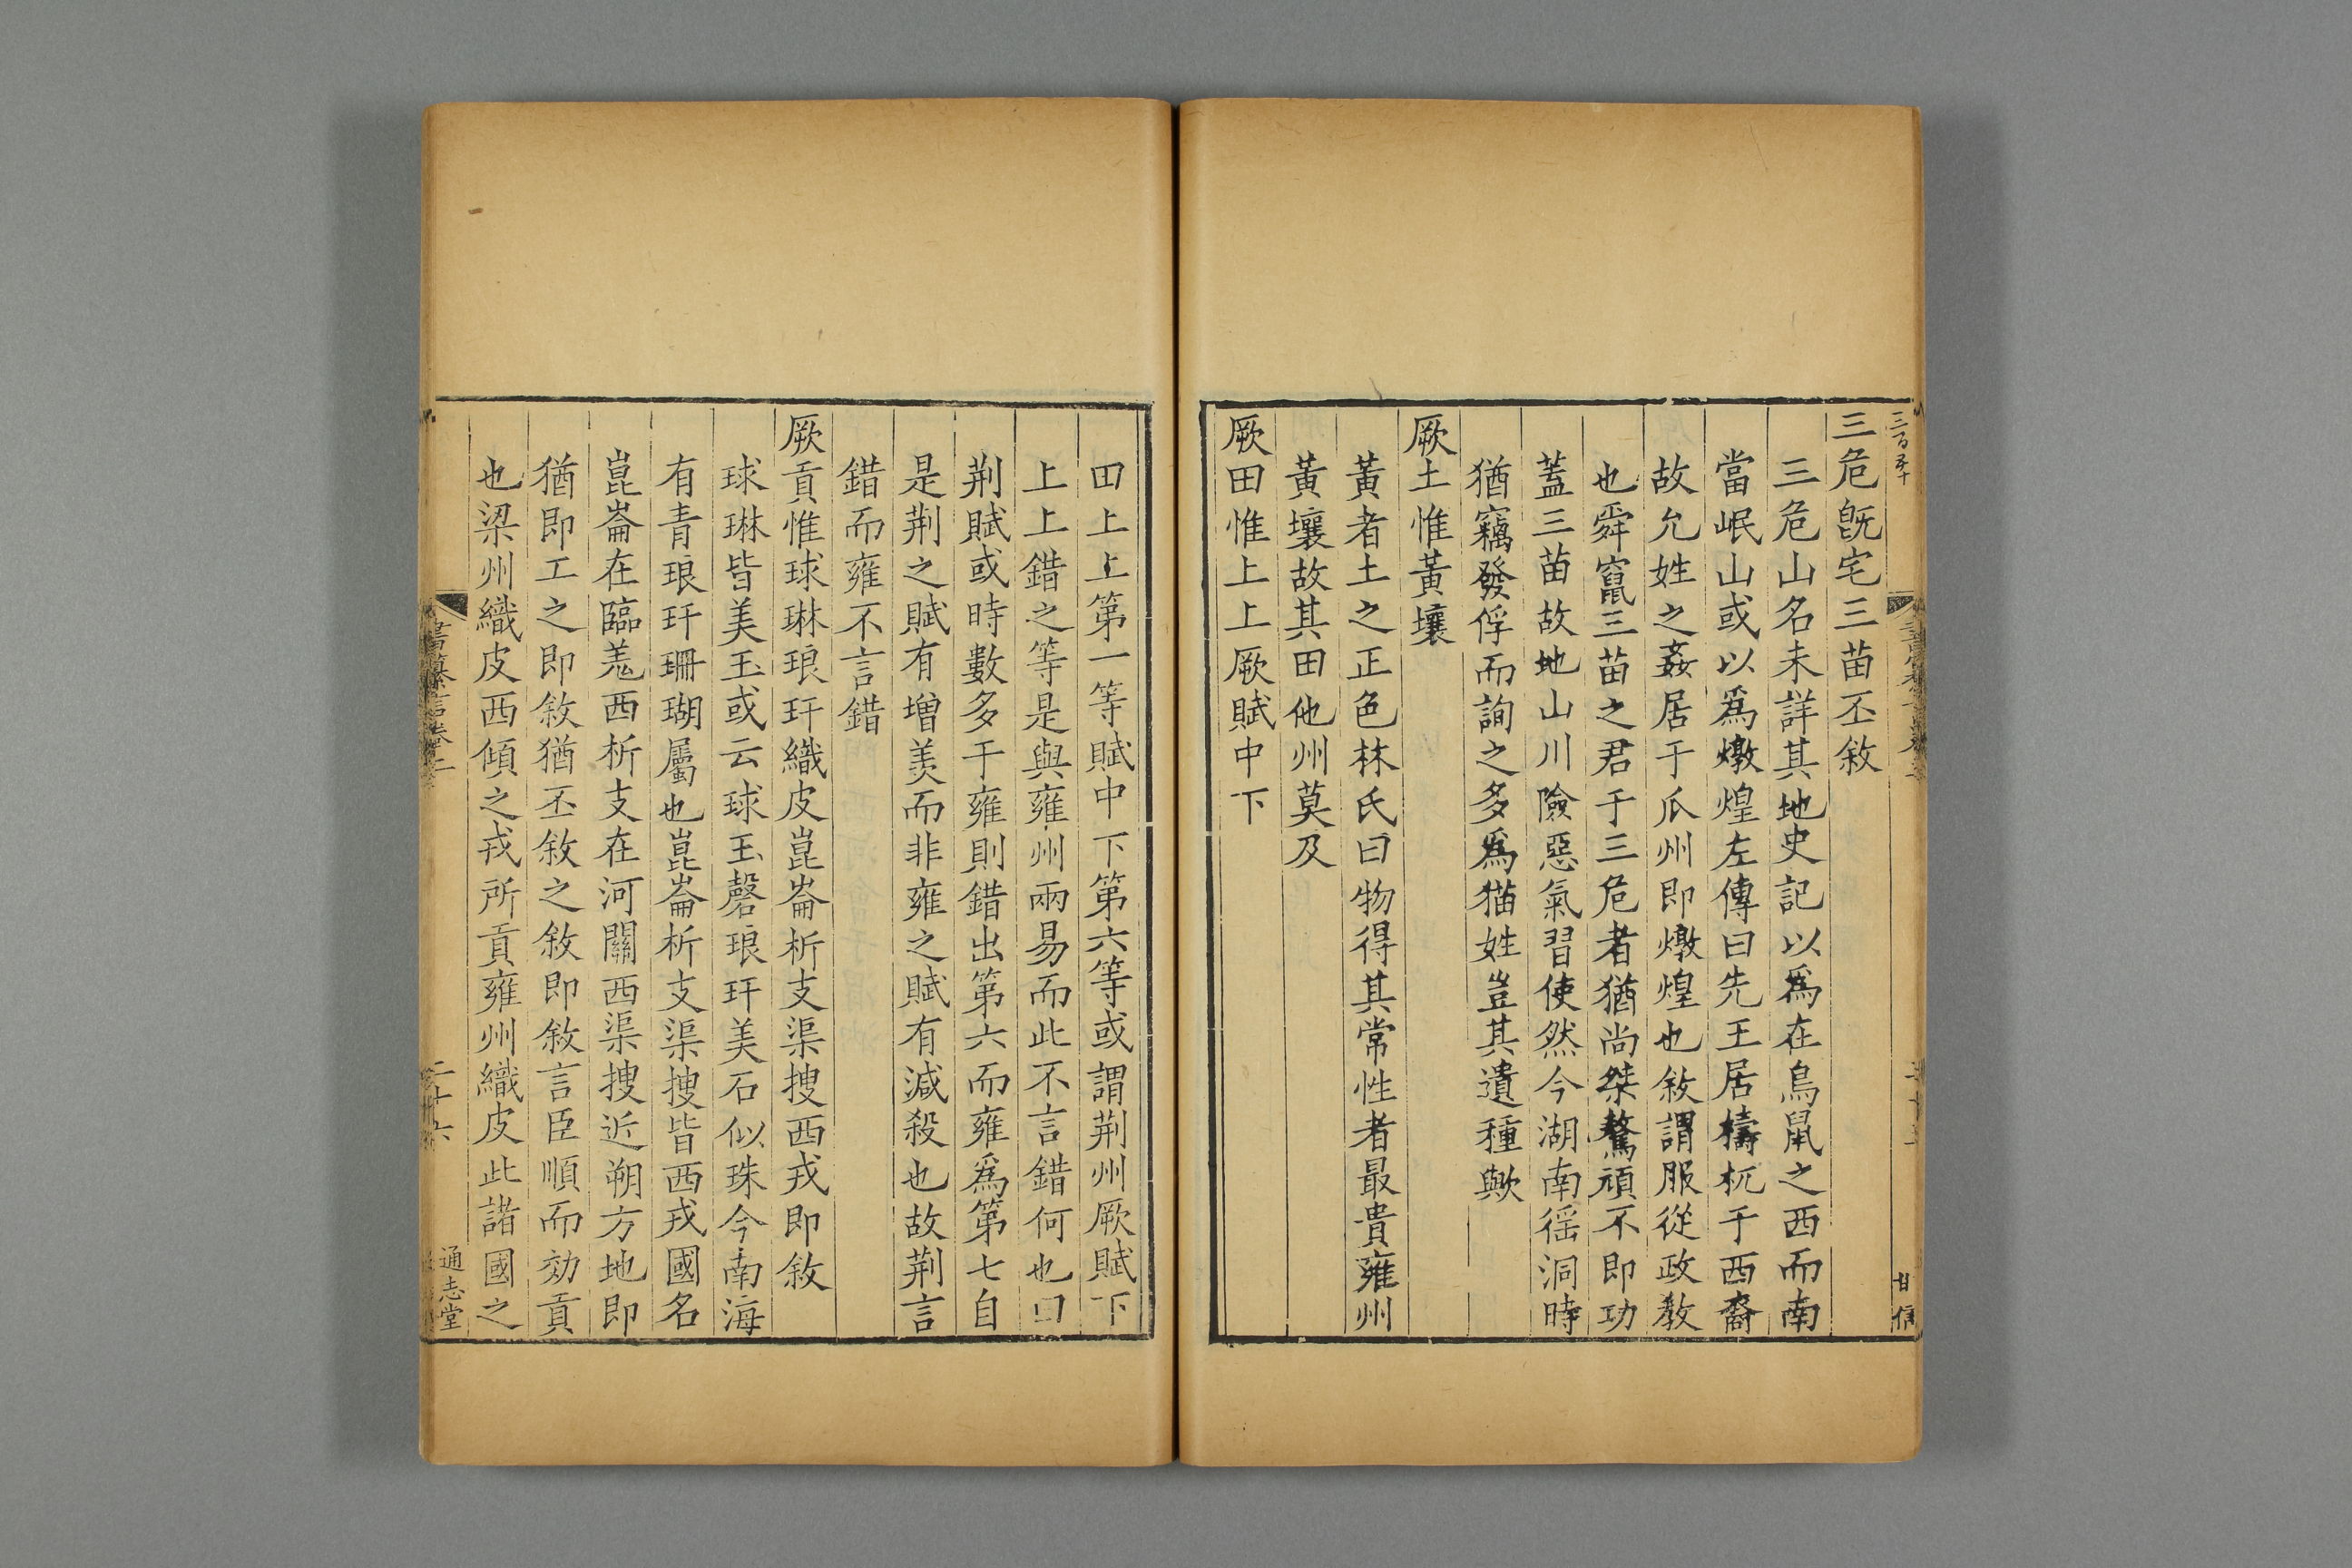 三百五十
三危旣宅三苗丕敘
三危山名未詳其地史記以爲在鳥鼠之西而南
當岷山或以爲燉煌左傳曰先王居檮杌于西裔
故允姓之姦居于瓜州即燉煌也敘謂服從政敎
也舜竄三苗之君于三危者猶尚桀驁頑不即功
蓋三苗故地山川險惡氣習使然今湖南徭洞時
猶竊發俘而詢之多爲猫姓豈其遺種歟
厥土惟黃壤
黃者土之正色林氏曰物得其常性者最貴雍州
黃壤故其田他州莫及
厥田惟上上厥賦中下
田上上第一等賦中下第六等或謂荆州厥賦下
上上錯之等是與雍州兩易而此不言錯何也曰
荆賦或時數多于雍則錯出第六而雍爲第七自
是荆之賦有增羨而非雍之賦有減殺也故荆言
錯而雍不言錯
厥貢惟球琳琅玕織皮崑崙析支渠搜西戎即敘
球琳皆美玉或云球玉磬琅玕美石似珠今南海
有青琅玕珊瑚屬也崑崙析支渠搜皆西戎國名
崑崙在臨羌西析支在河關西渠搜近朔方地即
猶即工之即敘猶丕敘之敘即敘言臣順而効貢
也梁州織皮西傾之戎所貢雍州織皮此諸國之
書纂言卷二
二十六
通志堂